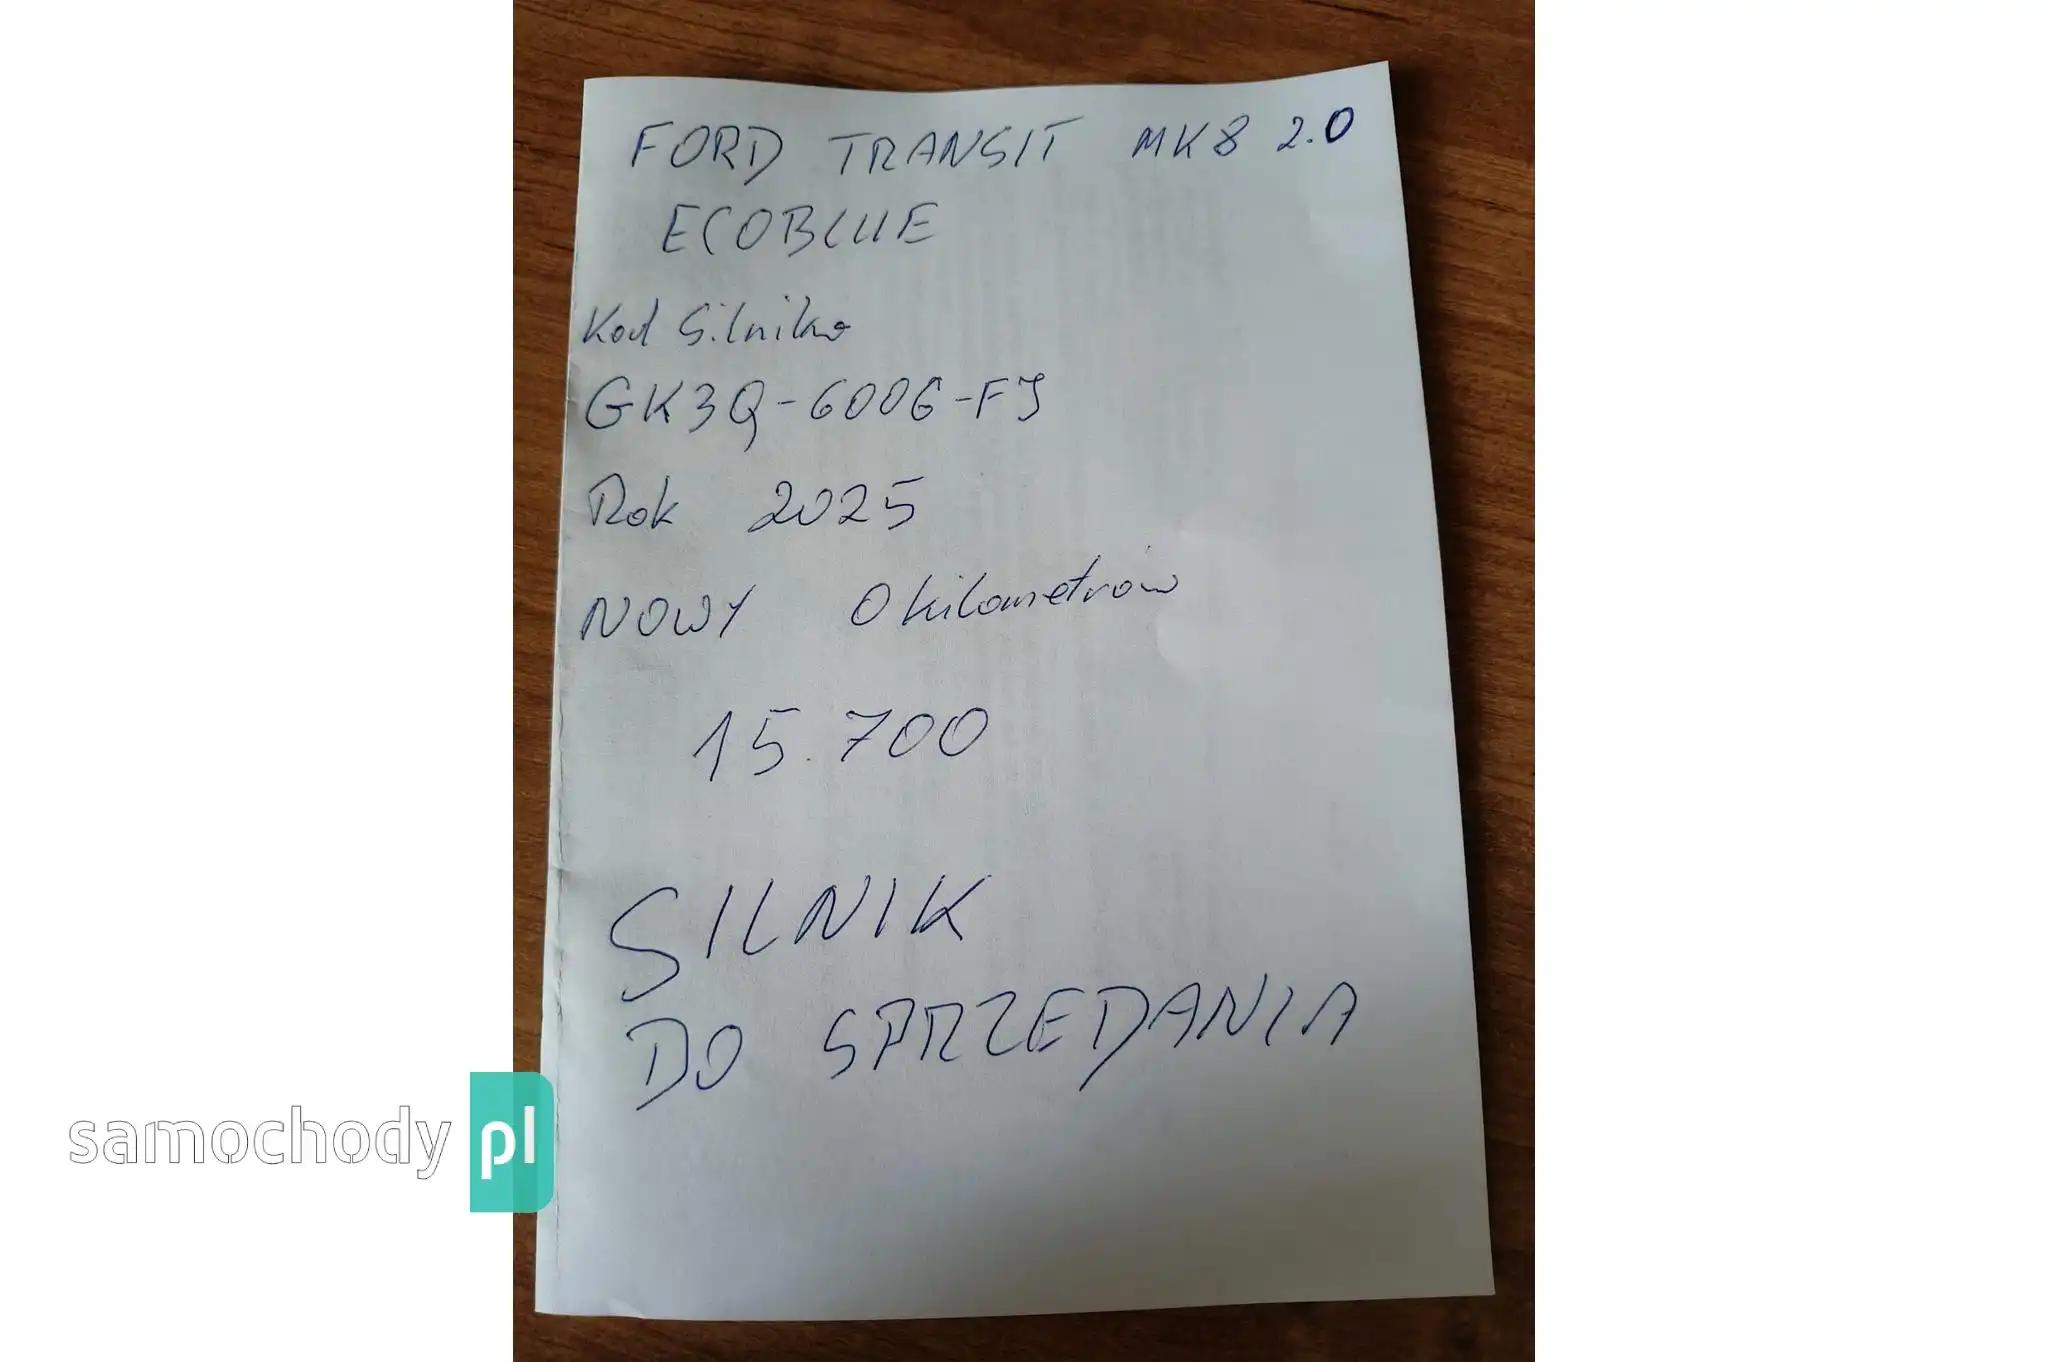 FORD TRANSIT MK8 2.0
ECOBLUE
Kod Silnika
GK3Q-6006-FJ
Rok 2025
NOWY 0 kilometrów
15.700
SILNIK
DO SPRZEDANIA
samochody pl